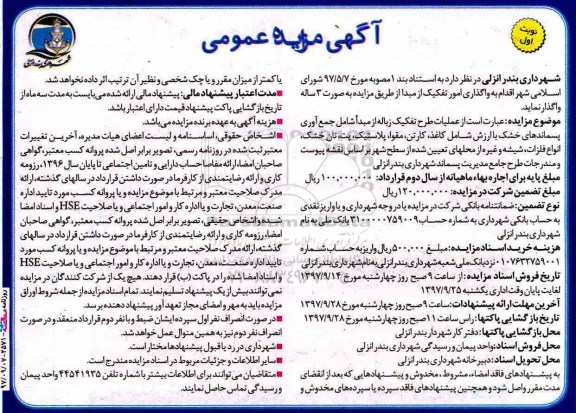 آگهی مزایده عمومی
نوبت اول
شهرداری بندر انزلی در نظر دارد به استناد بند ۱ مصوبه مورخ ۹۷/۵/۷ شورای
اسلامی شهر اقدام به واگذاری امور تفکیک از مبدا از طریق مزایده به صورت ۳ ساله
واگذار نماید.
موضوع مزایده: عبارت است از عملیات طرح تفکیک زباله از مبدأ شامل جمع آوری
پسماندهای خشک با ارزش شــامل کاغذ، کارتن، مقوا، پلاستیک،
انواع فلزات، شیشه و غیره از محلهای تعیین شده از سطح شهر بر اساس نقشه پیوست
و مندرجات طرح جامع مدیریت پسماند شهرداری بندر انزلی
مبلغ پایه برای اجاره بهاء ماهیانه از سال دوم قرارداد: ۱۰۰,۰۰۰,۰۰۰ ریال
مبلغ تضمین شرکت در مزایده: ۱۲۰,۰۰۰,۰۰۰ ریال
نوع تضمین: ضمانتنامه بانکی شرکت در مزایده یا درو جه شهرداری و یا واریز نقدی
به حساب بانکی شهرداری به شماره حساب ۳۱۰۰۰۰۰۷۵۹۰۰۹ بانک ملی به نام
شهرداری بندر انزلی
هزینه خریــد اسناد مزایــده: مبلــغ ۵۰۰,۰۰۰ ریال واریز به حساب شماره
۰۱۰۷۶۳۲۷۵۹۰۰۱ نزد بانک ملی شعبه شهرداری انزلی به نام شهرداری بندر انزلی
تاریخ فروش اسناد مزایده: از ساعت ۹ صبح روز چهارشنبه مورخ ۱۳۹۷/۹/۱۴
لغایت پایان وقت اداری یکشنبه ۱۳۹۷/۹/۲۵
آخرین مهلت ارائه پیشنهادات: ساعت ۹ صبح روز چهارشنبه مورخ ۱۳۹۷/۹/۲۸
تاریخ بازگشایی پاکتها: راس ساعت ۱۱ صبح روز چهارشنبه مورخ ۱۳۹۷/۹/۲۸
محل بازگشایی پاکتها: دفتر کار شهردار بندر انزلی
محل فروش اسناد: واحد پیمان و رسیدگی شهرداری بندر انزلی
محل تحویل اسناد: دبیرخانه شهرداری بندر انزلی
به پیشنهادهای فاقد امضاء، مشروط، مخدوش و پیشنهادهایی که بعد از انقضای
مدت مقرر واصل شود و همچنین پیشنهادهای فاقد سپرده یا سپرده‌های مخدوش و
یا کمتر از میزان مقرر و یا چک شخصی و نظیر آن ترتیب اثر داده نخواهد شد.
مدت اعتبار پیشنهاد مالی: پیشنهاد مالی ارائه شده می‌بایست به مدت سه ماه از
تاریخ بازگشایی پاکت پیشنهاد قیمت دارای اعتبار باشد.
هزینه آگهی به عهده برنده مزایده می‌باشد.
اشــخاص حقوقی، اساســنامه و لیست اعضای هیات مدیره، آخریــن تغییرات
معتبر ثبت شده در روزنامه رسمی، تصویر برابر اصل شده پروانه کسب معتبر، گواهی
صاحبان امضا، ارائه مفاصا حساب دارایی و تامین اجتماعی تا پایان سال ۱۳۹۶، رزومه
کاری و ارائه رضایتمندی از کارفرما در صورت داشتن قرارداد در سالهای گذشته، ارائه
مدرک صلاحیت معتبر و مرتبط با موضوع مزایده و یا پروانه کسب مورد تایید اداره
صنعت، معدن، تجارت و یا اداره کار و امور اجتماعی و یا صلاحیت HSE و اسناد امضا
شــده و اشخاص حقیقی، تصویر برابر اصل شده پروانه کسب معتبر، گواهی صاحبان
امضا، رزومه کاری و ارائه رضایتمندی از کارفرما در صورت داشتن قرارداد در سالهای
گذشته، ارائه مدرک صلاحیت معتبر و مرتبط با موضوع مزایده و یا پروانه کسب مورد
تایید اداره صنعت، معدن، تجارت و یا اداره کار و امور اجتماعی و یا صلاحیت HSE
و اسناد امضا شده را در پاکت (ب) قرار دهند. هیچ یک از شرکت کنندگان در مزایده
نمی‌توانند بیش از یک پیشنهاد تسلیم نمایند. تمام اسناد مزایده از جمله شروط اوراق
مزایده باید به مهر و امضای مجاز تعهدآور پیشنهاد دهنده برسد.
در صورت انصراف نفر اول سپرده ایشان ضبط و با نفر دوم قرارداد منعقد و در صورت
انصراف نفر دوم نیز به همین منوال عمل خواهد شد.
شهرداری در رد یا قبول پیشنهادها مختار است.
سایر اطلاعات و جزئیات مربوط در اسناد مزایده مندرج است.
متقاضیان می‌توانند برای اطلاعات بیشتر با شماره تلفن ۴۴۵۴۱۹۳۵ واحد پیمان
و رسیدگی تماس حاصل نمایند.